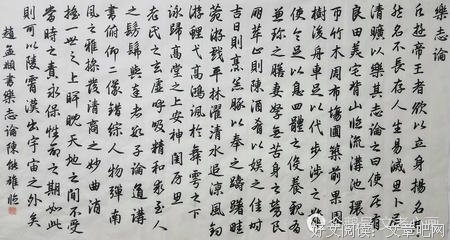 樂志論
凡遊帝王者欲以立身揚名
然名不長存人生易滅卜居
清曠以樂其志論之曰使居有
良田美宅背山臨流溝池環
匝竹木周布場圃築前果園
樹後舟車足以代步涉之難
使令足以息四體之役養親有
兼珍之膳妻孥無苦身之勞良
朋萃止則陳酒肴以娛之佳時
吉日則烹羔豚以奉之躊躇畦
苑游戲平林濯清水追涼風釣
游鯉弋高鴻諷於舞雩之下
詠歸高堂之上安神閨房思
老氏之玄虛呼吸精和求至人
之髣髴與達者數子論道講
書俯仰二儀錯綜人物彈南
風之雅操發清商之妙曲逍
遙一世之上睥睨天地之間不受
當時之責永保性命之期如此
則可以陵霄漢出宇宙之外矣
趙孟頫書樂志論陳能雄臨
好文阅读：文章吧网